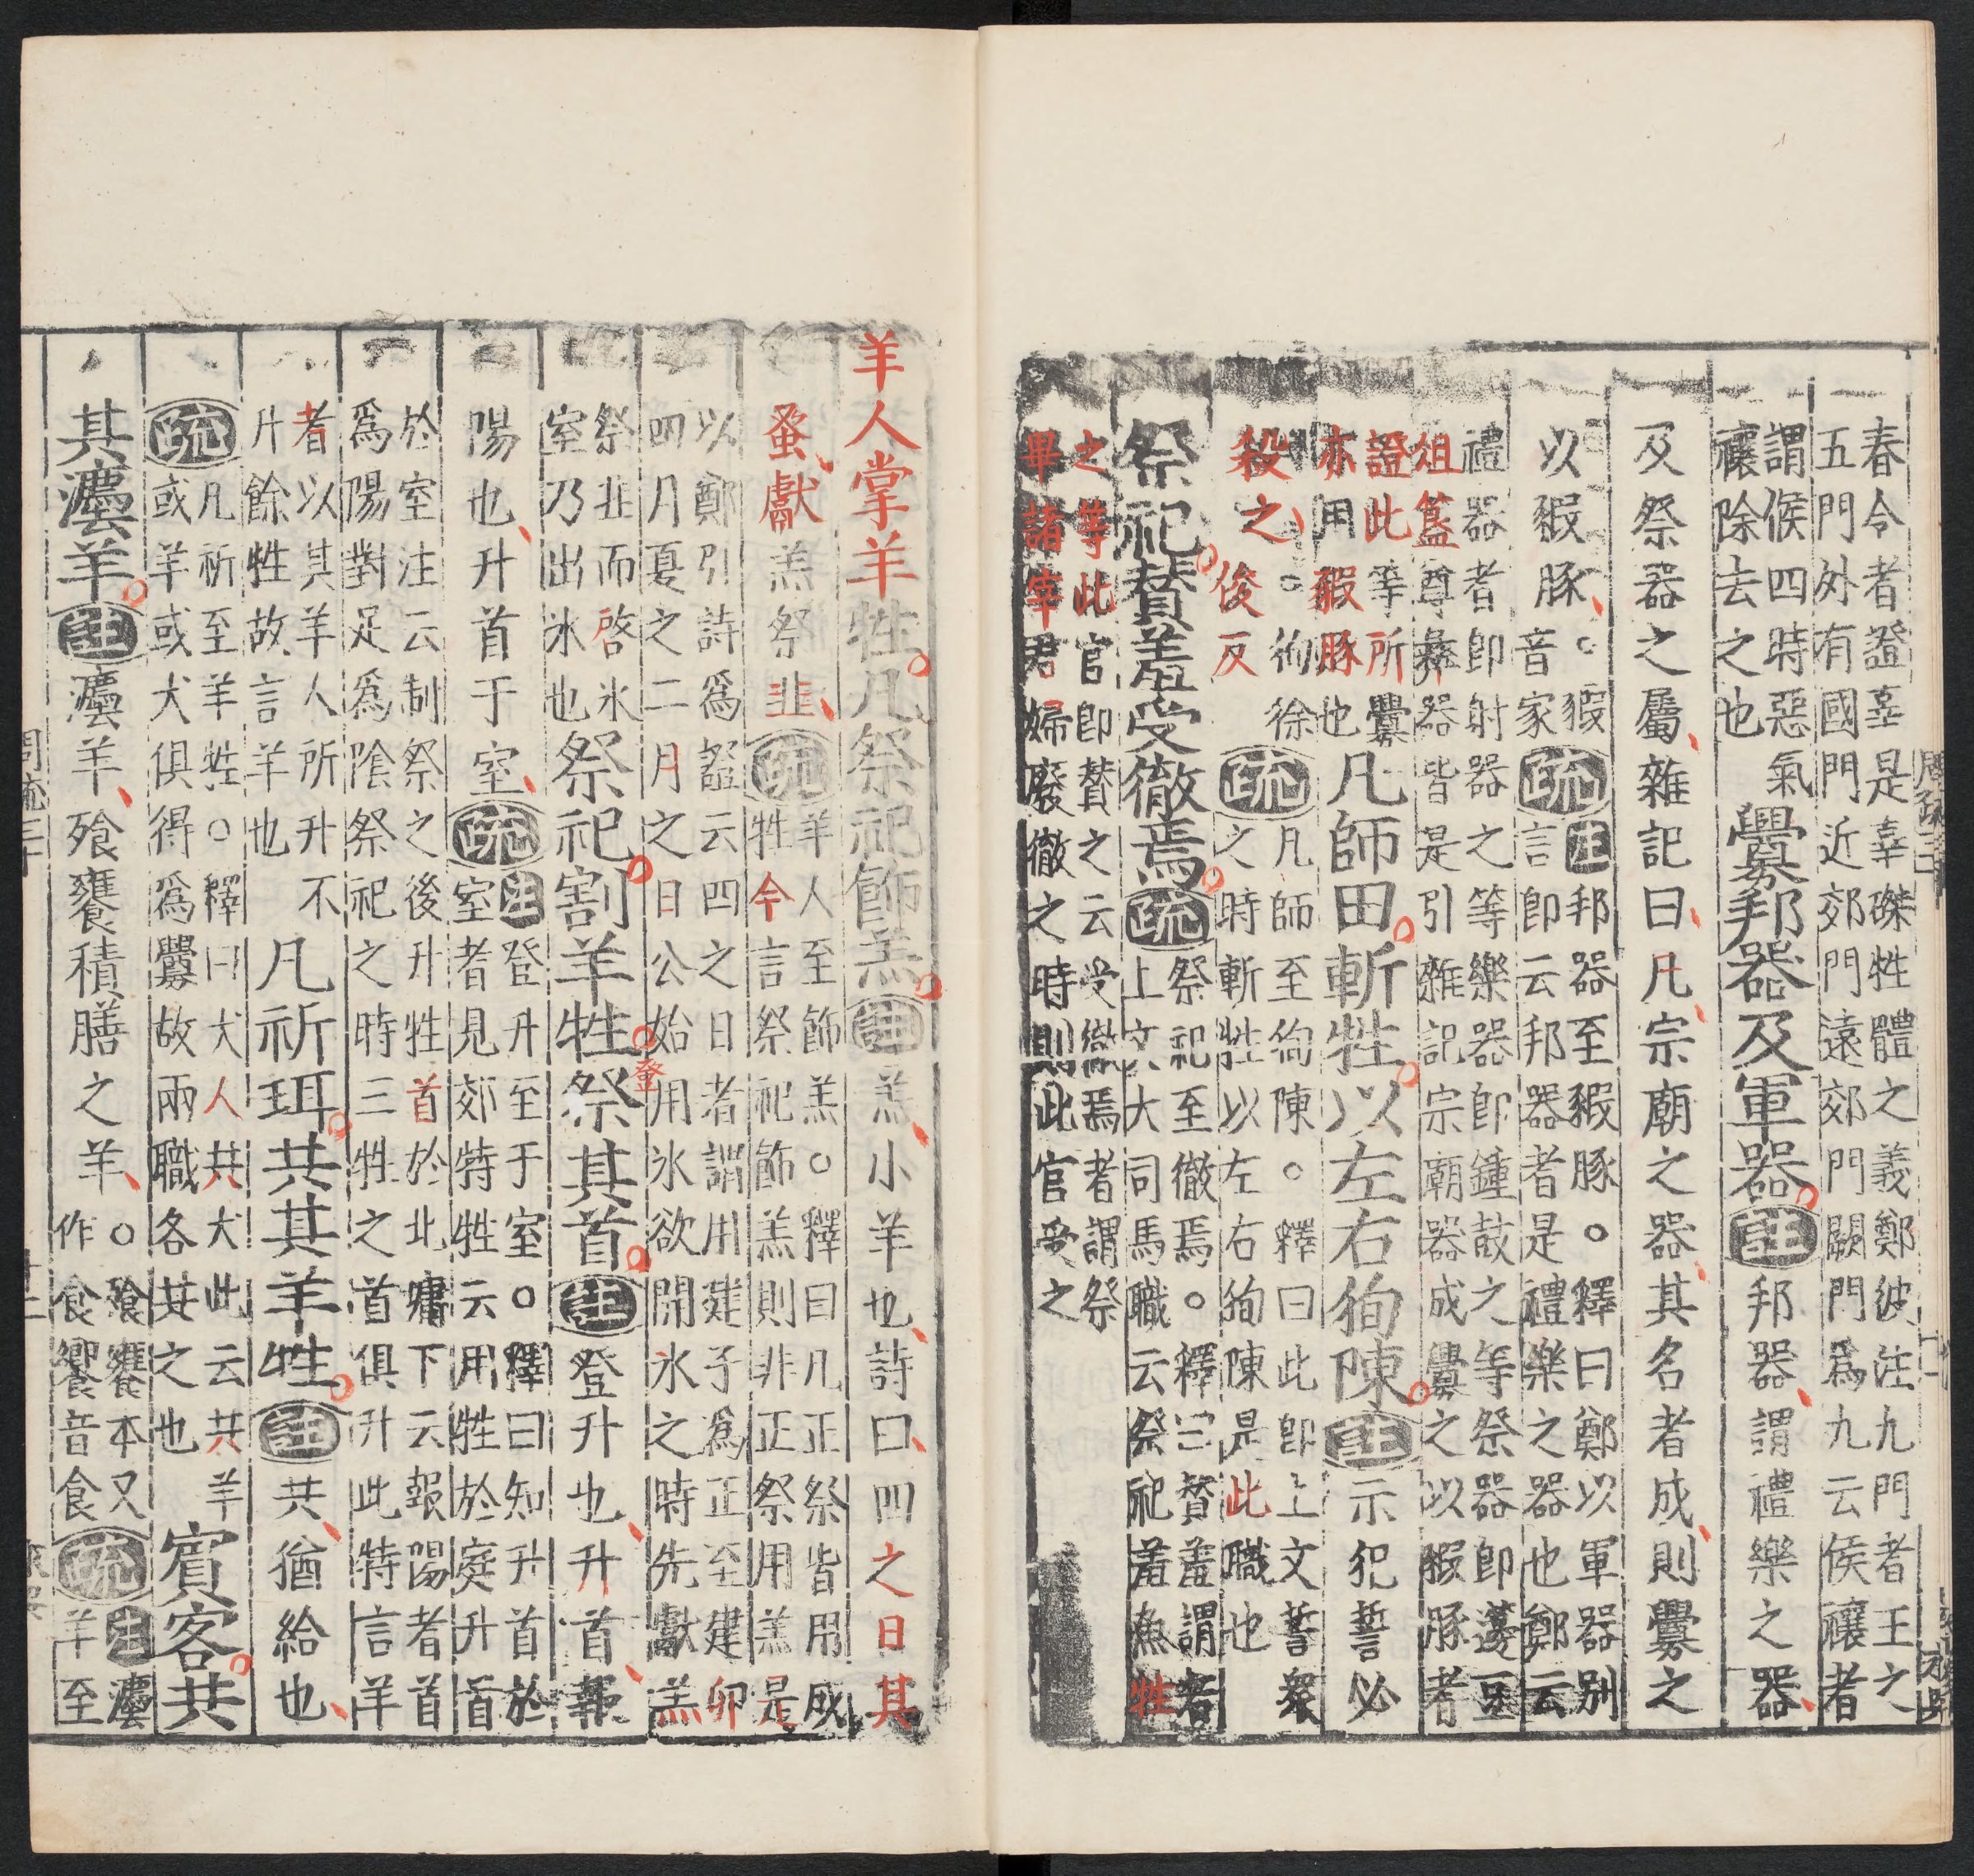 春令者證辜是辜磔牲體之義鄭彼注九門者王之
五門外有國門近郊門遠郊門關門爲九云侯禳者
謂候四時惡氣
禳除去之也
釁邦器及軍器注邦器謂禮樂之器
及祭器之屬雜記曰凡宗廟之器其名者成則釁之
以豭豚
○豭
音家
疏注邦器至豭豚○釋曰鄭以軍器别
言即云邦器者是禮樂之器也鄭云
禮器者即射器之等樂器即鍾鼓之等祭器即籩豆
俎簋尊彝器皆是引雜記宗廟器成釁之以豭豚者
證此等所釁
亦用豭豚也
凡師田斬牲以左右徇陳注示犯誓必
殺之
○徇徐
俊反
疏凡師至徇陳○釋曰此即上文誓衆
之時斬牲以左右徇陳是此職也
祭祀贊羞受徹焉疏祭祀至徹焉○釋曰贊羞謂者
上文大司馬職云祭祀羞魚牲
之等此官即贊之云受徹焉者謂祭
畢諸宰君婦廢徹之時則此官受之
周疏三十
羊人掌羊牲凡祭祀飾羔注羔小羊也詩曰四之日其
蚤獻羔祭韭疏羊人至飾羔○釋曰凡正祭皆用成
牲今言祭祀飾羔則非正祭用羔是
以鄭引詩爲證云四之日者謂用建子爲正至建卯
四月夏之二月之日公始用氷欲開氷之時先獻羔
祭韭而啓氷
室乃出氷也
祭祀割羊牲登祭其首注登升也升首報
陽也升首于室疏注登升至于室○釋曰知升首於
室者見郊特牲云用牲於庭升首
於室注云制祭之後升牲首於北墉下云報陽者首
爲陽對足爲陰祭祀之時三牲之首俱升此特言羊
者以其羊人所升不
升餘牲故言羊也
凡祈珥共其羊牲注共猶給也
疏凡祈至羊牲○釋曰犬人共犬此云共羊
或羊或犬俱得爲釁故兩職各共之也
賓客共
其灋羊注灋羊飧饔積膳之羊
○飧饔本又
作食饗音食
疏注灋
羊至
周疏三十